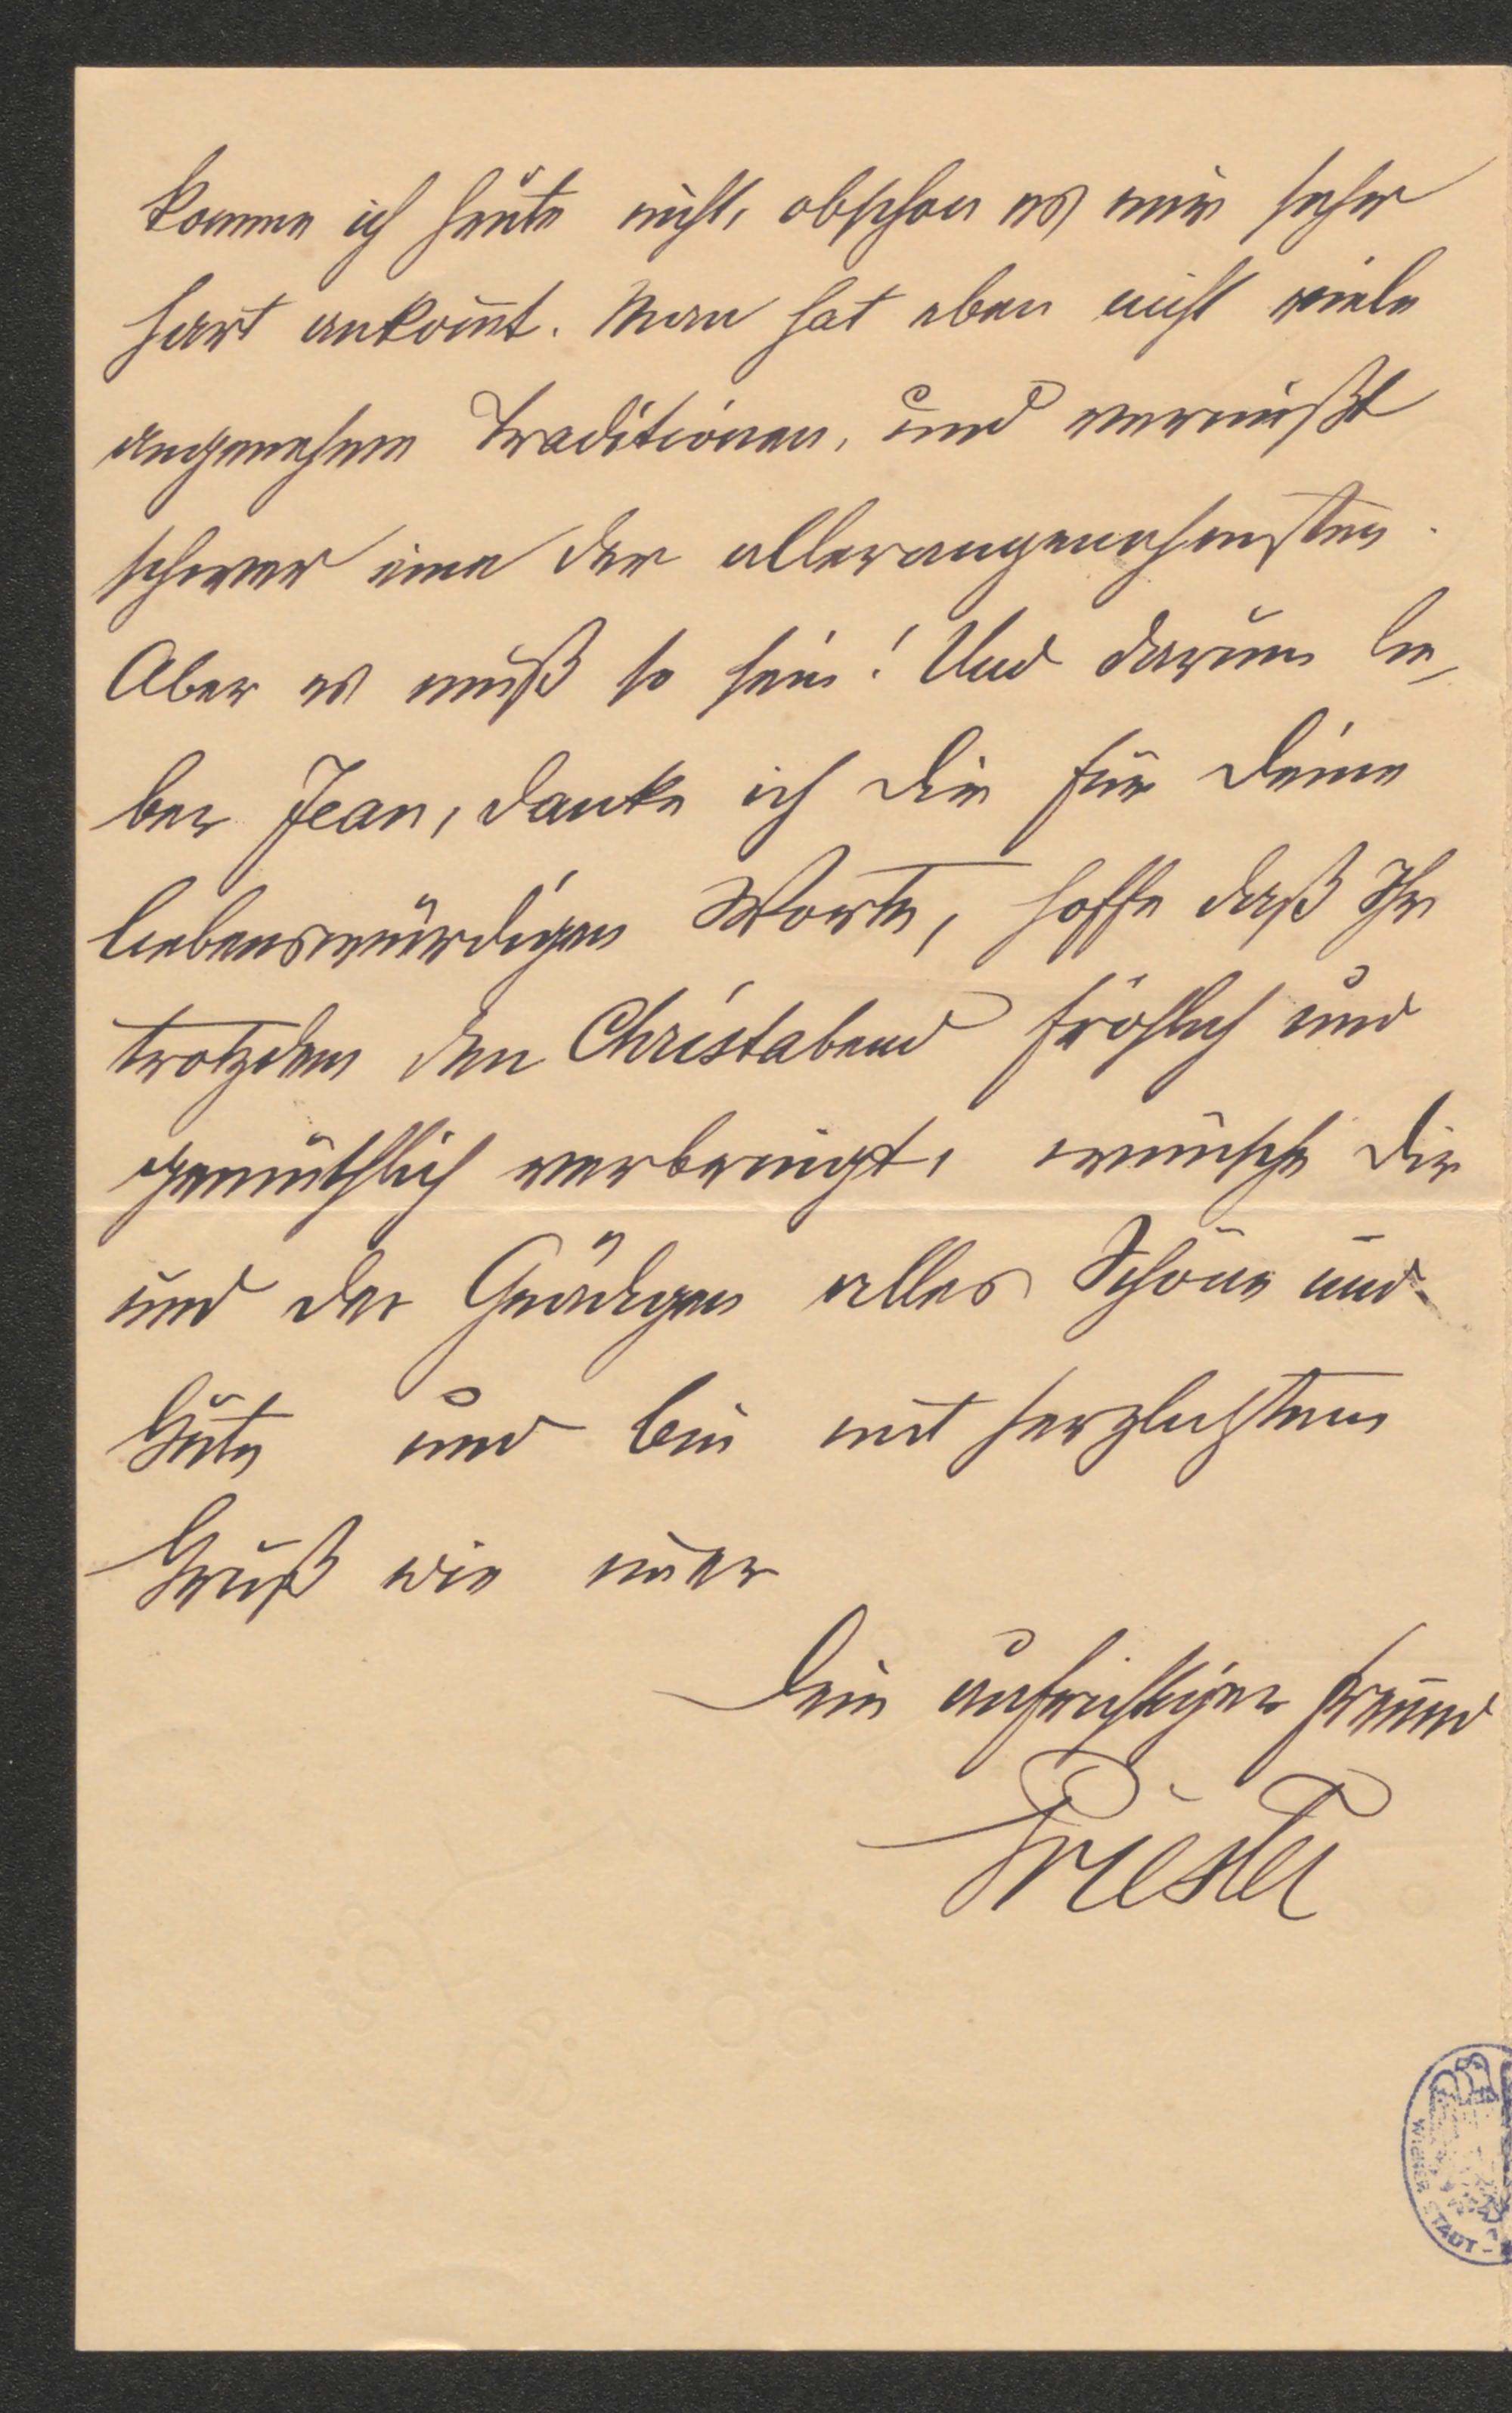 komme ich heute nicht, obschon es mir sehr
hart ankom̅t. Man hat eben nicht viele
angenehme Traditionen, und vermißt
schwer eine der allerangenehmsten.
Aber es muß so sein! Und darum lie-
ber Jean, danke ich Dir für Deine
liebenswürdigen Worte, hoffe daß Ihr
trotzdem den Christabend fröhlich und
gemüthlich verbringt, wünsche Dir
und der Gnädigen alles Schöne und
Gute und bin mit herzlichstem
Gruß wie im̅er
Dein aufrichtiger Freund
Priester
WIENER STADT-